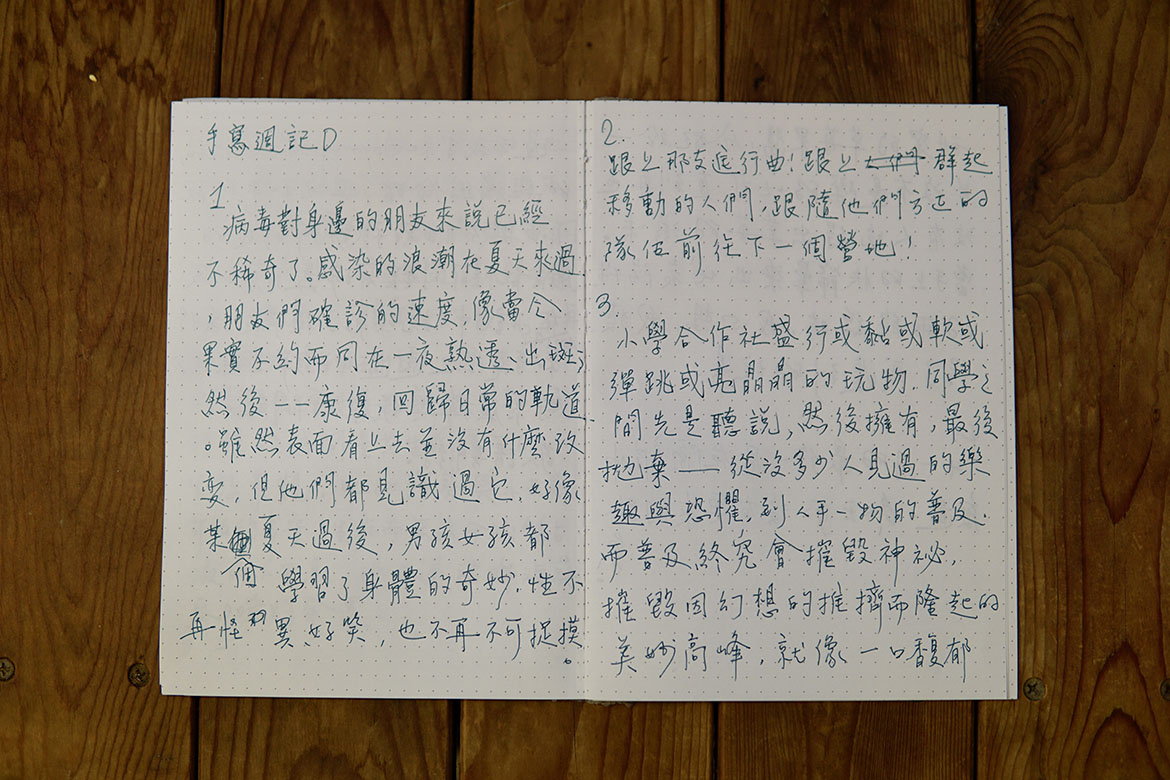 手寫週記D
1
病毒對身邊的朋友來說已經
不稀奇了。感染的浪潮在夏天來過
，朋友們確診的速度，像當令
果實不約而同在一夜熟透、出斑，
然後一一康復，回歸日常的軌道
。雖然表面看上去並沒有什麼改
變，但他們都見識過它，好像
某個夏天過後，男孩女孩都
學習了身體的奇妙，性不
再怪異、好笑，也不再不可捉摸
。
2.
跟上那支進行曲！跟上群起
移動的人們，跟隨他們方正的
隊伍前往下一個營地！
3.
小學合作社盛行或黏或軟或
彈跳或亮晶晶的玩物，同學之
間先是聽說，然後擁有，最後
拋棄——從沒多少人見過的樂
趣與恐懼，到人手一物的普及。
而普及終究會摧毀神祕，
摧毀因幻想的推擠而隆起的
美妙高峰，就像一口馥郁